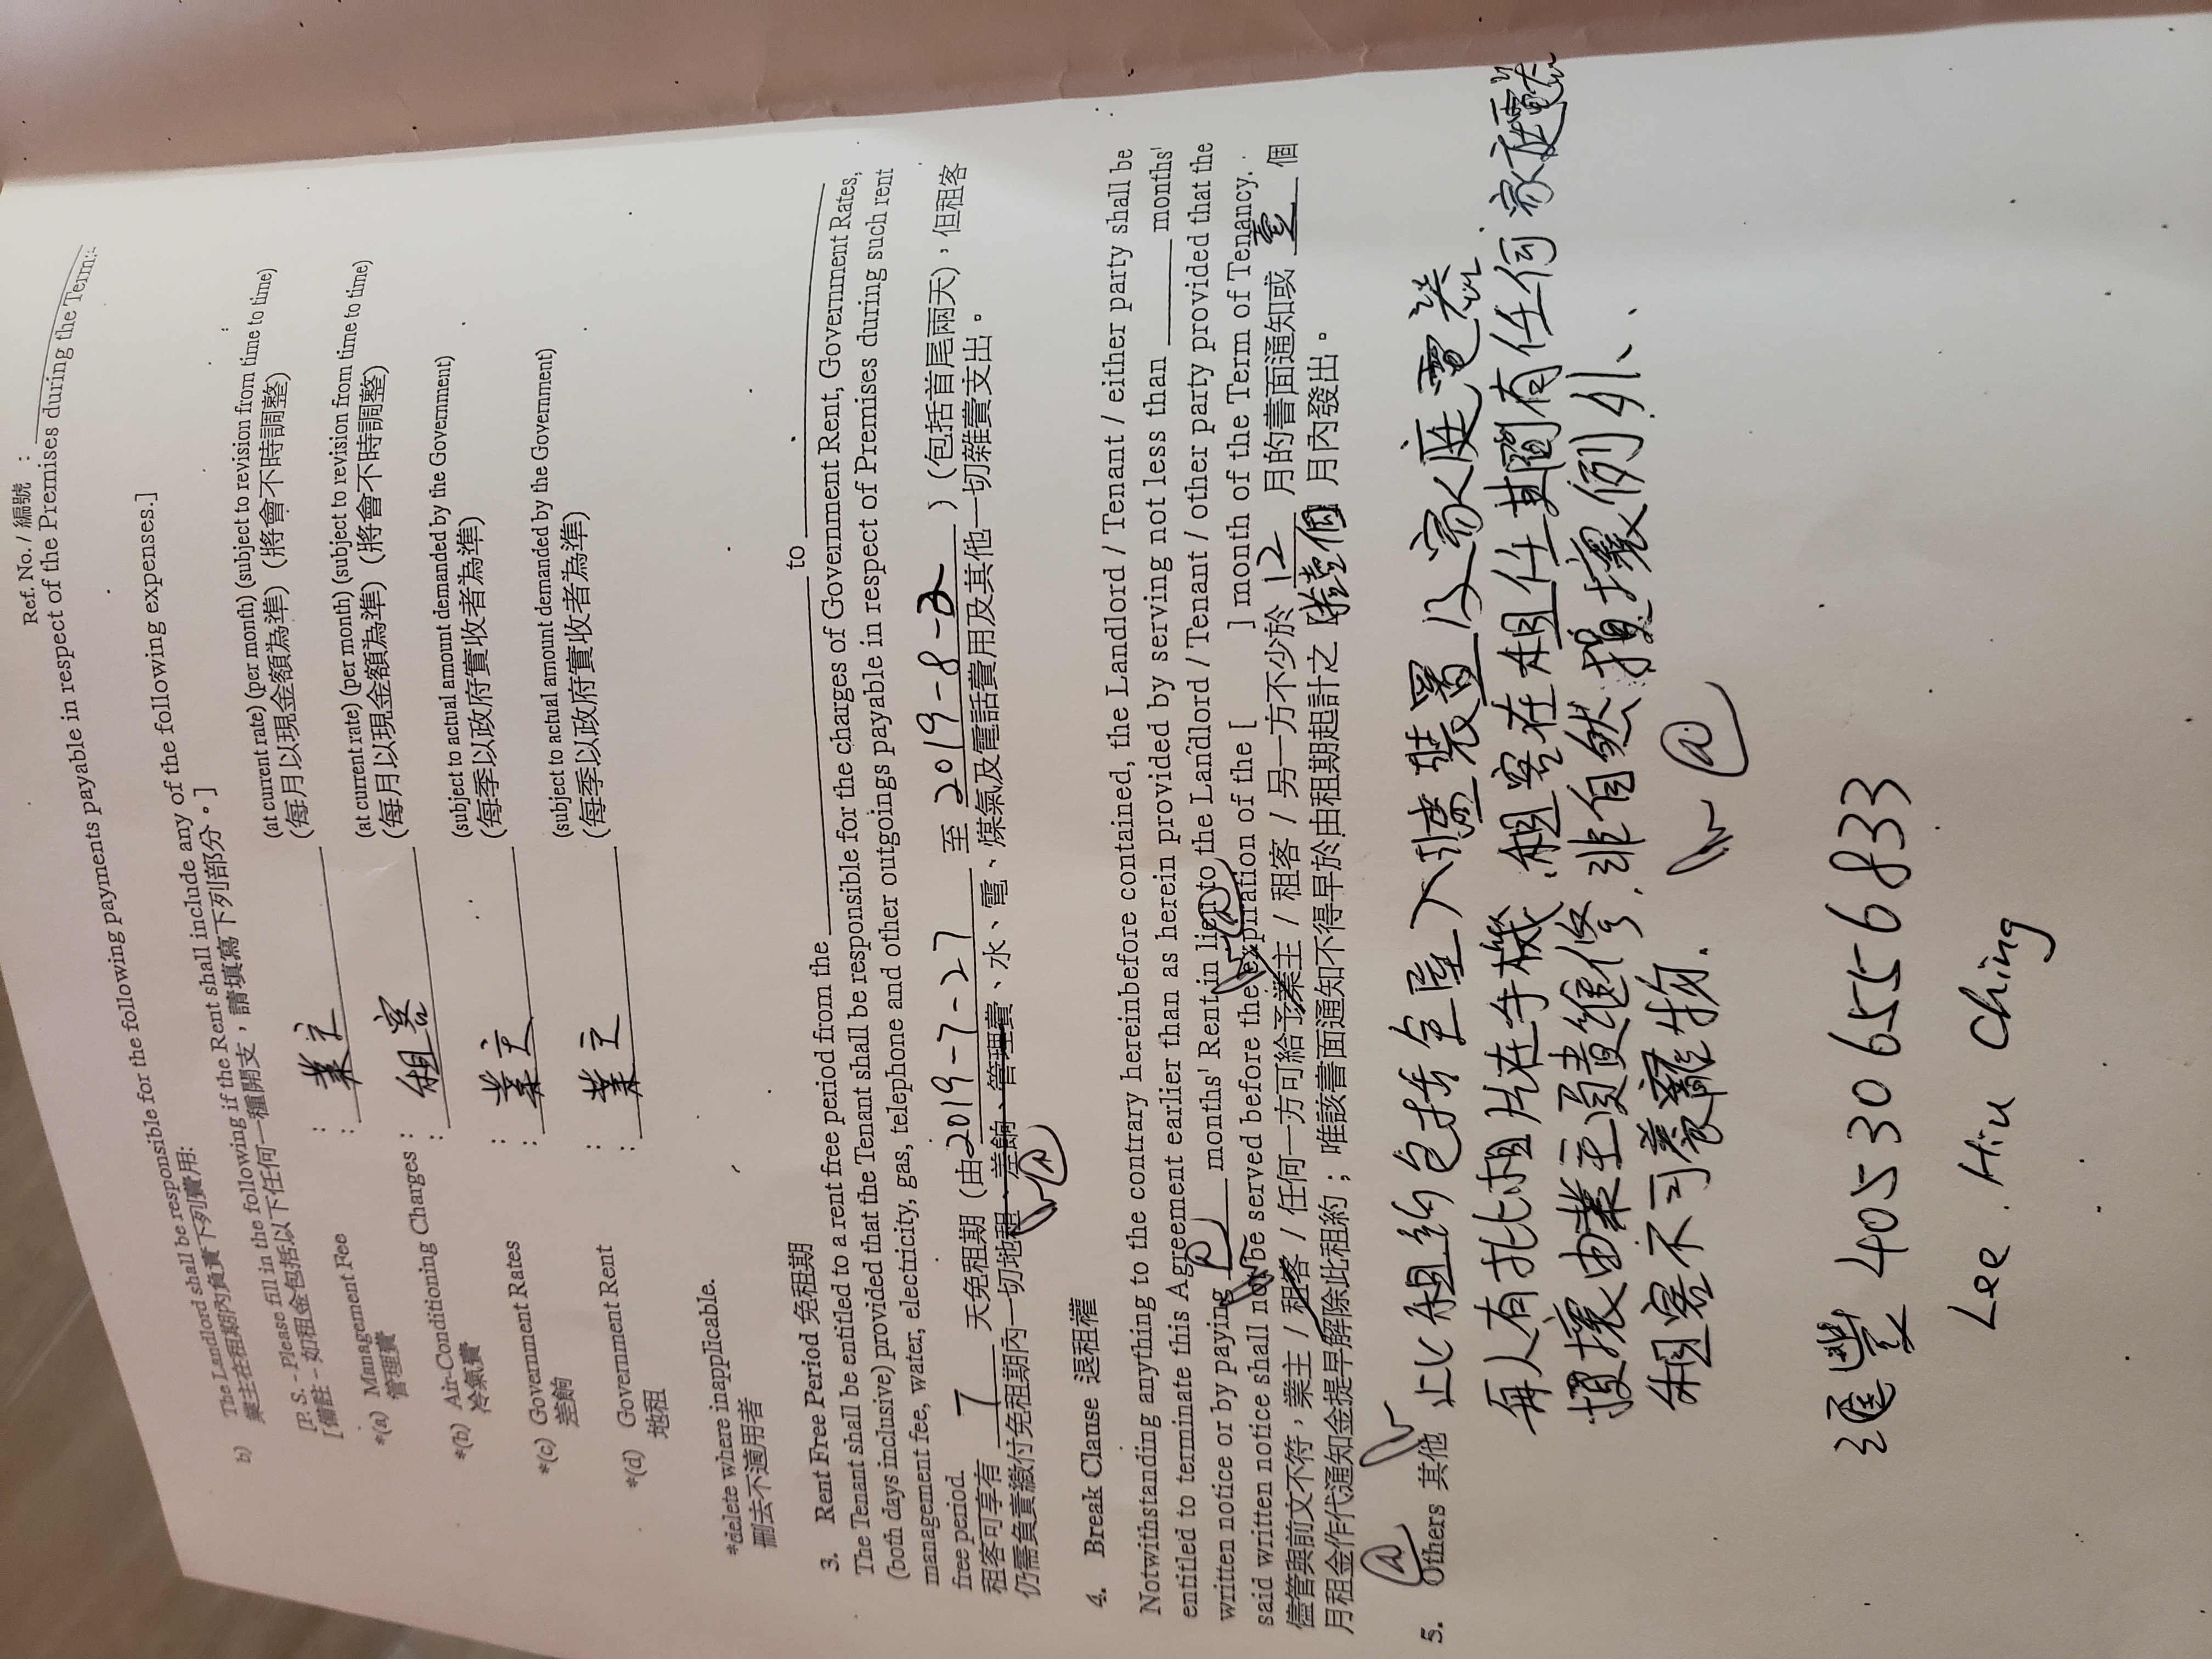 Ref. No. / 編號 :
b) The Landlord shall be responsible for the following payments payable in respect of the Premises during the Term:
業主在租期內負責下列費用:
[P. S. - Please fill in the following if the Rent shall include any of the following expenses.]
[備註 - 如租金包括以下任何一種開支，請填寫下列部分。]
*(a) Management Fee : (at current rate) (per month) (subject to revision from time to time)
管理費 : 業主 (每月以現金額為準) (將會不時調整)
*(b) Air-Conditioning Charges : (at current rate) (per month) (subject to revision from time to time)
冷氣費 : 租客 (每月以現金額為準) (將會不時調整)
*(c) Government Rates : (subject to actual amount demanded by the Government)
差餉 : 業主 (每季以政府實收者為準)
*(d) Government Rent : (subject to actual amount demanded by the Government)
地租 : 業主 (每季以政府實收者為準)
*delete where inapplicable.
刪去不適用者
3. Rent Free Period 免租期
The Tenant shall be entitled to a rent free period from the ______ to ______
(both days inclusive) provided that the Tenant shall be responsible for the charges of Government Rent, Government Rates,
management fee, water, electricity, gas, telephone and other outgoings payable in respect of Premises during such rent
free period.
租客可享有 7 天免租期 (由 2019-7-27 至 2019-8-2 ) (包括首尾兩天)，但租客
仍需負責繳付免租期內一切地租、差餉、管理費、水、電、煤氣及電話費用及其他一切雜費支出。
4. Break Clause 退租權
Notwithstanding anything to the contrary hereinbefore contained, the Landlord / Tenant / either party shall be
entitled to terminate this Agreement earlier than as herein provided by serving not less than ______ months'
written notice or by paying ______ months' Rent in lieu to the Landlord / Tenant / other party provided that the
said written notice shall not be served before the expiration of the [ ] month of the Term of Tenancy.
儘管與前文不符，業主 / 租客 / 任何一方可給予業主 / 租客 / 另一方不少於 12 月的書面通知或 壹 個
月租金作代通知金提早解除此租約；唯該書面通知不得早於由租期起計之 月內發出。
5. Others 其他 此租約包括全屋入牆裝置以及家庭電器
每人有批租片在手機,租客在租任期間有任何家庭電器
損壞由業主負責維修,非自然損壞例外、
租客不可養寵物.
滙豐 405306556833
Lee Hiu Ching